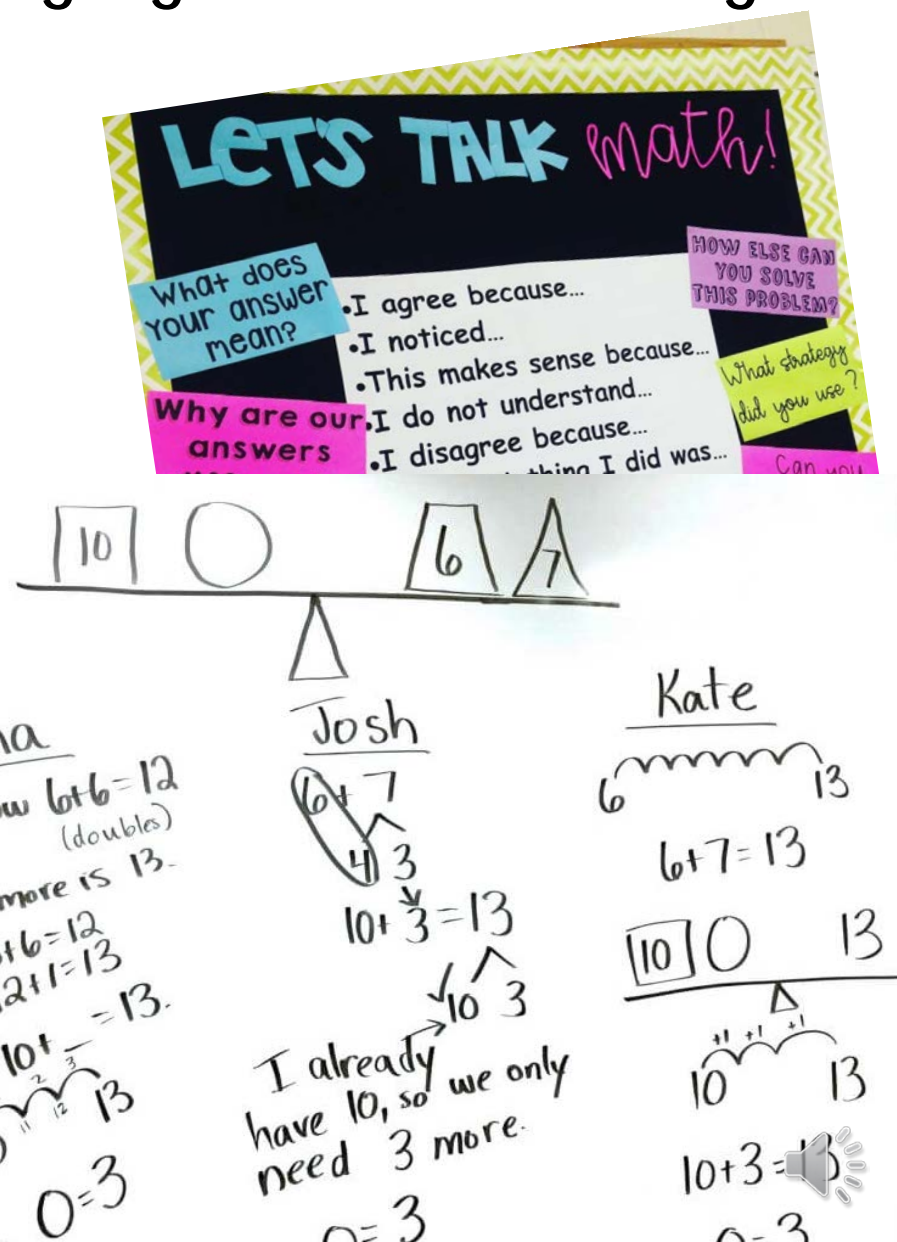 LET'S TALK math!
What does
your answer
mean?
•I agree because...
•I noticed...
•This makes sense because...
•I do not understand...
•I disagree because...
I did was...
HOW ELSE CAN
YOU SOLVE
THIS PROBLEM?
What strategy
did you use?
Why are our
answers
Can you
10
6
7
6+6=12
(doubles)
more is 13.
+6=12
2+1=13
10+_=13.
2 3
11 12 13
O=3
Josh
6+7
4 3
10+3=13
10 3
I already
have 10, so we only
need 3 more.
O=3
Kate
6 13
6+7=13
10 13
+1 +1 +1
10 13
10+3=13
O=3